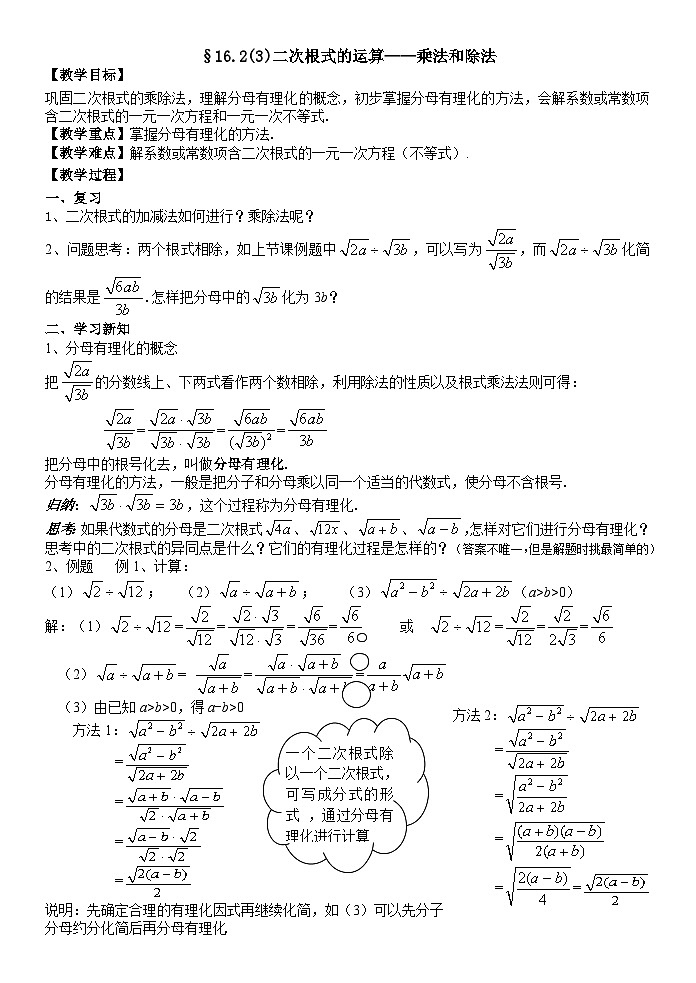 §16.2(3)二次根式的运算——乘法和除法
【教学目标】
巩固二次根式的乘除法，理解分母有理化的概念，初步掌握分母有理化的方法，会解系数或常数项
含二次根式的一元一次方程和一元一次不等式.
【教学重点】掌握分母有理化的方法.
【教学难点】解系数或常数项含二次根式的一元一次方程（不等式）.
【教学过程】
一、复习
1、二次根式的加减法如何进行？乘除法呢？
2、问题思考：两个根式相除，如上节课例题中√(2a)÷√(3b)，可以写为√(2a)/√(3b)，而√(2a)÷√(3b)化简
的结果是√(6ab)/3b.怎样把分母中的√(3b)化为 3b？
二、学习新知
1、分母有理化的概念
把√(2a)/√(3b)的分数线上、下两式看作两个数相除，利用除法的性质以及根式乘法法则可得：
√(2a)/√(3b)=(√(2a)·√(3b))/(√(3b)·√(3b))=√(6ab)/(√(3b))²=√(6ab)/3b
把分母中的根号化去，叫做分母有理化.
分母有理化的方法，一般是把分子和分母乘以同一个适当的代数式，使分母不含根号.
归纳：√(3b)·√(3b)=3b，这个过程称为分母有理化.
思考：如果代数式的分母是二次根式√(4a)、√(12x)、√(a+b)、√(a−b),怎样对它们进行分母有理化？
思考中的二次根式的异同点是什么？它们的有理化过程是怎样的？（答案不唯一，但是解题时挑最简单的）
2、例题 例 1、计算：
（1）√2÷√12； （2）√a÷√(a+b)； （3）√(a²−b²)÷√(2a+2b)（a>b>0）
解：（1）√2÷√12=√2/√12=(√2·√3)/(√12·√3)=√6/√36=√6/6 或 √2÷√12=√2/√12=√2/(2√3)=√6/6
（2）√a÷√(a+b)= √a/√(a+b)=(√a·√(a+b))/(√(a+b)·√(a+b))=a/(a+b)√(a+b)
（3）由已知 a>b>0，得 a-b>0
方法 1：√(a²−b²)÷√(2a+2b)
=√(a²−b²)/√(2a+2b)
=(√(a+b)·√(a−b))/(√2·√(a+b))
=(√(a−b)·√2)/(√2·√2)
=√(2(a−b))/2
一个二次根式除
以一个二次根式，
可写成分式的形
式 ，通过分母有
理化进行计算
方法 2：√(a²−b²)÷√(2a+2b)
=√(a²−b²)/√(2a+2b)
=√((a²−b²)/(2a+2b))
=√((a+b)(a−b)/(2(a+b)))
=√(2(a−b)/4)=√(2(a−b))/2
说明：先确定合理的有理化因式再继续化简，如（3）可以先分子
分母约分化简后再分母有理化